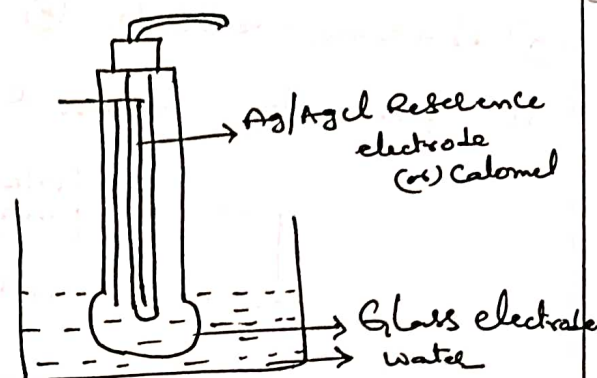 Ag/AgCl Reference
electrode
(or) Calomel
Glass electrode
water